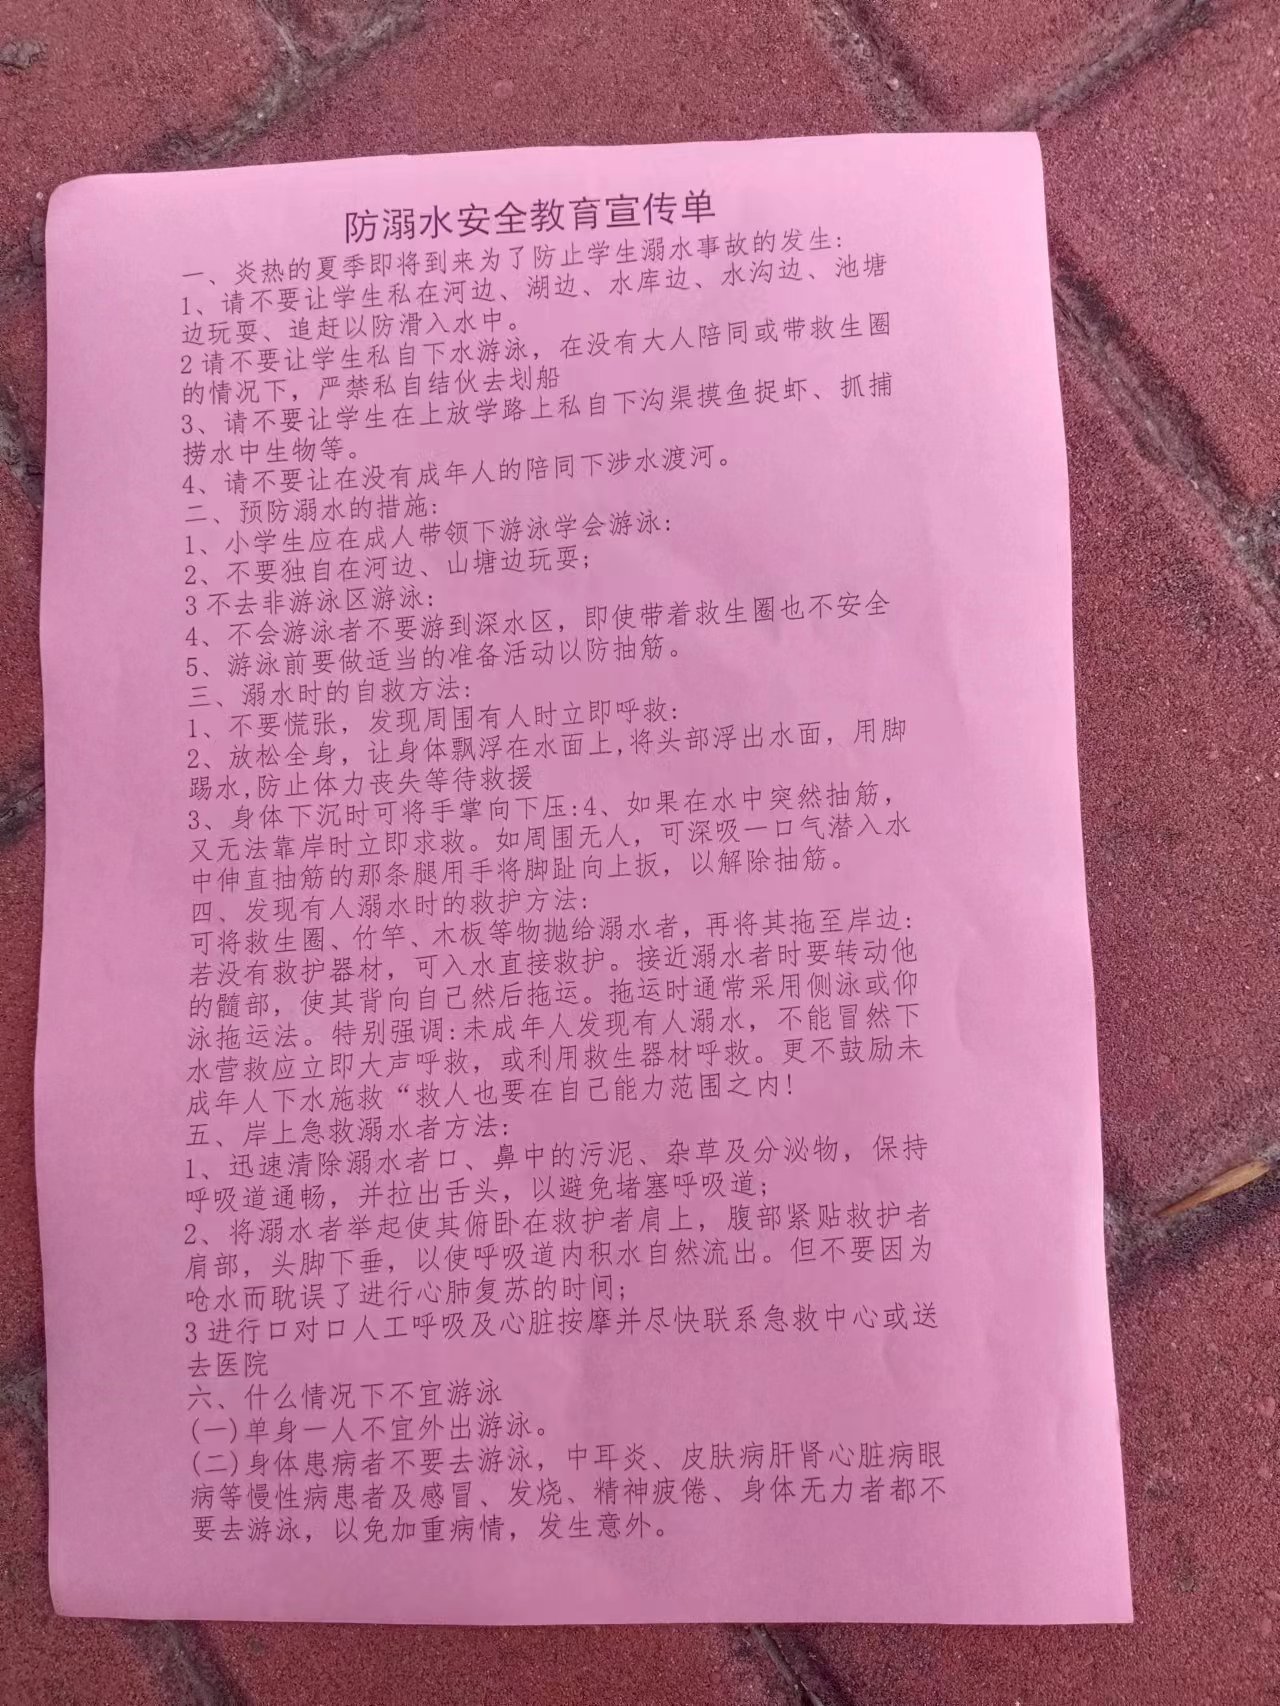 防溺水安全教育宣传单
一、炎热的夏季即将到来为了防止学生溺水事故的发生:
1、请不要让学生私在河边、湖边、水库边、水沟边、池塘
边玩耍、追赶以防滑入水中。
2请不要让学生私自下水游泳，在没有大人陪同或带救生圈
的情况下，严禁私自结伙去划船
3、请不要让学生在上放学路上私自下沟渠摸鱼捉虾、抓捕
捞水中生物等。
4、请不要让在没有成年人的陪同下涉水渡河。
二、预防溺水的措施:
1、小学生应在成人带领下游泳学会游泳:
2、不要独自在河边、山塘边玩耍;
3不去非游泳区游泳:
4、不会游泳者不要游到深水区，即使带着救生圈也不安全
5、游泳前要做适当的准备活动以防抽筋。
三、溺水时的自救方法:
1、不要慌张，发现周围有人时立即呼救:
2、放松全身，让身体飘浮在水面上,将头部浮出水面，用脚
踢水,防止体力丧失等待救援
3、身体下沉时可将手掌向下压:4、如果在水中突然抽筋，
又无法靠岸时立即求救。如周围无人，可深吸一口气潜入水
中伸直抽筋的那条腿用手将脚趾向上扳，以解除抽筋。
四、发现有人溺水时的救护方法:
可将救生圈、竹竿、木板等物抛给溺水者，再将其拖至岸边:
若没有救护器材，可入水直接救护。接近溺水者时要转动他
的髓部，使其背向自己然后拖运。拖运时通常采用侧泳或仰
泳拖运法。特别强调:未成年人发现有人溺水，不能冒然下
水营救应立即大声呼救，或利用救生器材呼救。更不鼓励未
成年人下水施救“救人也要在自己能力范围之内!
五、岸上急救溺水者方法:
1、迅速清除溺水者口、鼻中的污泥、杂草及分泌物，保持
呼吸道通畅，并拉出舌头，以避免堵塞呼吸道;
2、将溺水者举起使其俯卧在救护者肩上，腹部紧贴救护者
肩部，头脚下垂，以使呼吸道内积水自然流出。但不要因为
呛水而耽误了进行心肺复苏的时间;
3进行口对口人工呼吸及心脏按摩并尽快联系急救中心或送
去医院
六、什么情况下不宜游泳
(一)单身一人不宜外出游泳。
(二)身体患病者不要去游泳，中耳炎、皮肤病肝肾心脏病眼
病等慢性病患者及感冒、发烧、精神疲倦、身体无力者都不
要去游泳，以免加重病情，发生意外。